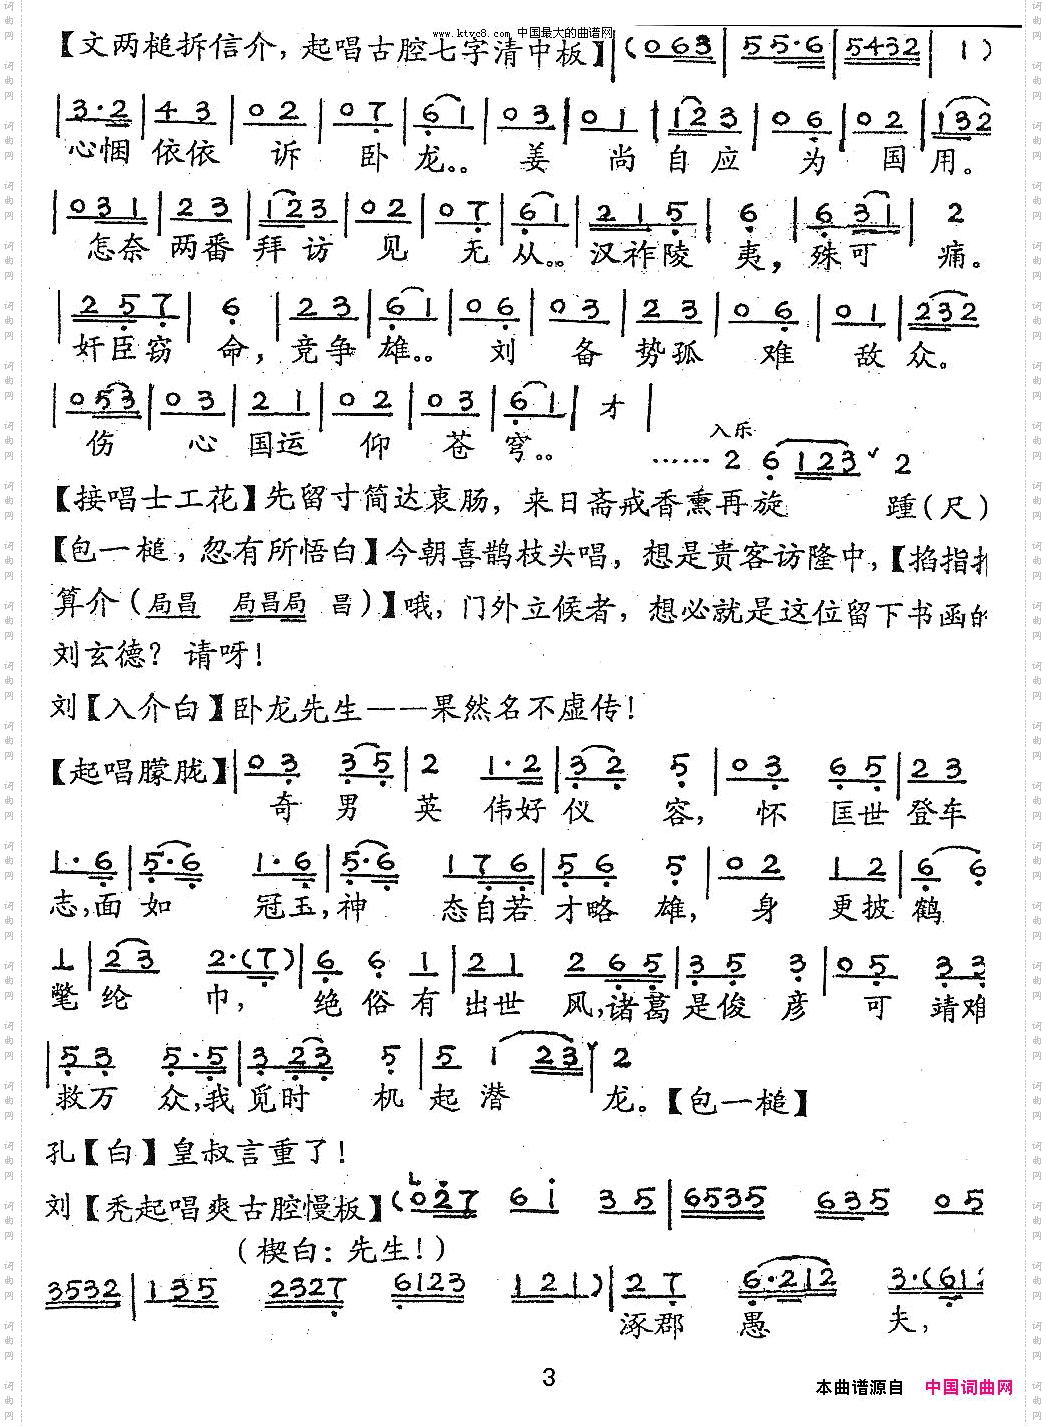 www.ktvc8.com 中国最大的曲谱网
【文两槌拆信介，起唱古腔七字清中板】(0 6 3 | 5 5·6 | 5 4 3 2 | 1 )
3·2 | 4 3 | 0 2 | 0 7 | 6 1 | 0 3 | 0 1 | 1 2 3 | 0 6 | 0 2 | 1 3 2
心悃 依依 诉 卧 龙。。 姜 尚 自 应 为 国 用。
0 3 1 | 2 3 | 1 2 3 | 0 2 | 0 7 | 6 1 | 2 1 5 | 6 | 6 3 1 | 2
怎奈 两番 拜 访 见 无 从。。 汉祚陵 夷，殊可 痛。
2 5 7 | 6 | 2 3 | 6 1 | 0 6 | 0 3 | 2 3 | 0 6 | 0 1 | 2 3 2
奸臣窃 命，竞争 雄。。 刘 备 势孤 难 敌 众。
0 5 3 | 0 3 | 2 1 | 0 2 | 0 3 | 6 1 | 才 |
伤 心 国运 仰 苍 穹。。
入乐
…… 2 6 1 2 3 2
【接唱士工花】先留寸简达衷肠，来日斋戒香熏再旋 踵(尺)
【包一槌，忽有所悟白】今朝喜鹊枝头唱，想是贵客访隆中，【掐指
算介(局昌 局昌局 昌)】哦，门外立候者，想必就是这位留下书函的
刘玄德？请呀！
刘【入介白】卧龙先生——果然名不虚传！
【起唱朦胧】| 0 3 3 5 2 1·2 | 3 2 5 | 0 3 6 5 | 2 3
奇 男 英 伟好 仪 容，怀 匡世 登车
1·6 | 5·6 1·6 | 5·6 1 7 6 | 5 6 5 | 0 2 1 2 | 6 6
志，面 如 冠玉，神 态自若 才略 雄，身 更披 鹤
1 | 2 3 2·(7) | 6 6 1 | 2 1 2 6 5 | 3 5 3 | 0 5 3 3
氅 纶 巾，绝 俗 有 出世 风，诸葛 是俊 彦 可 靖难
5 3 5·5 | 3 2 3 5 | 5 1 2 3 | 2
救万 众，我 觅时 机 起 潜 龙。【包一槌】
孔【白】皇叔言重了！
刘【秃起唱爽古腔慢板】(0 2 7 6 i 3 5 | 6 5 3 5 6 3 5 0 5
(楔白：先生！)
3 5 3 2 | 1 3 5 2 3 2 7 6 1 2 3 1 2 1 ) | 2 7 6·2 1 2 3·(6 1
涿郡 愚 夫，
3
本曲谱源自 中国词曲网